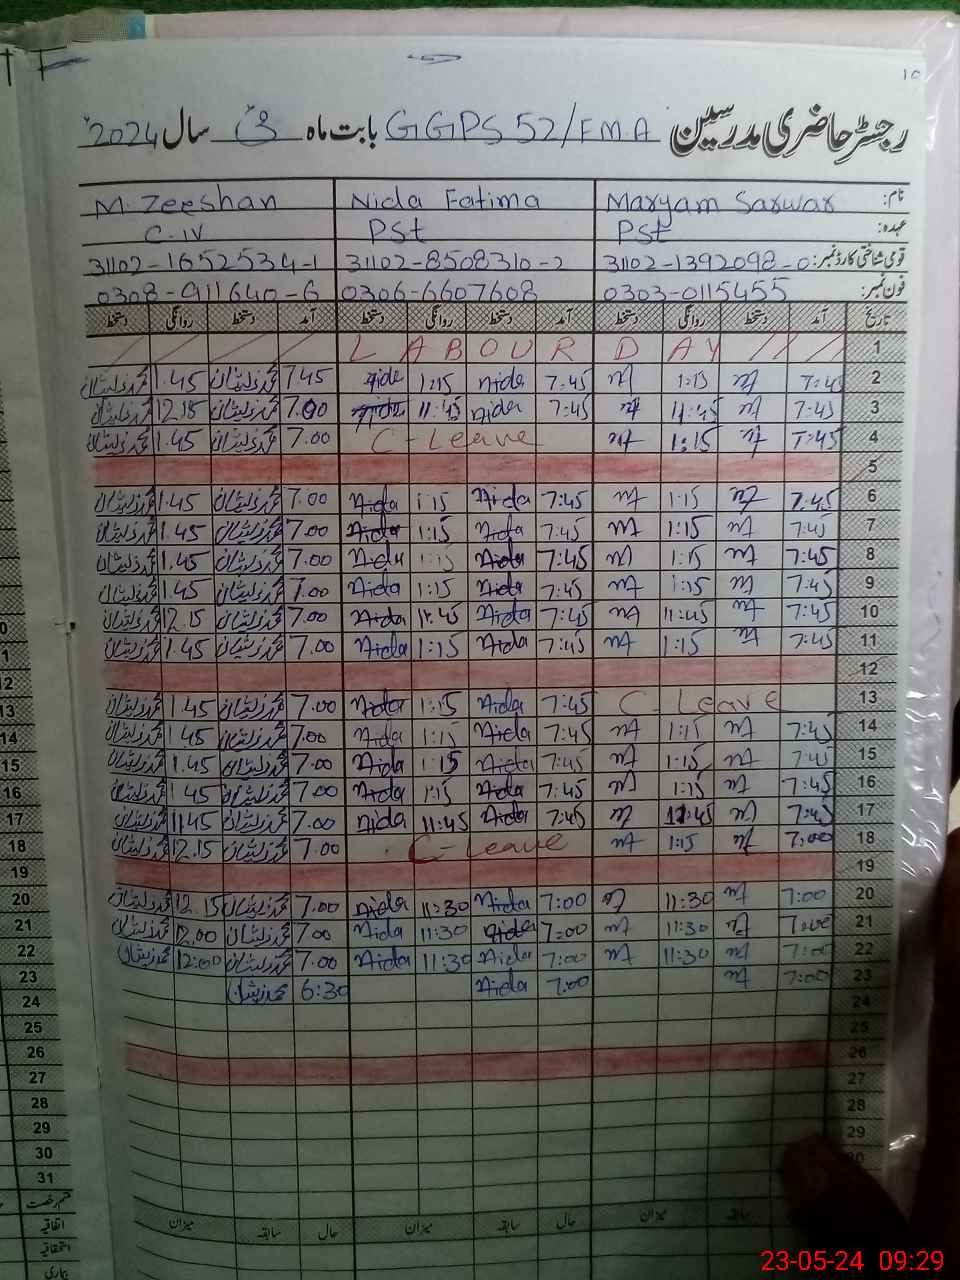 10
رجسٹر حاضری مدرسین GGPS 52/F.M.A بابت ماہ مئی سال 2024ء
نام: Maryam Sarwar Nida Fatima M. Zeeshan
عہدہ: PSt PSt C-IV
قومی شناختی کارڈ نمبر: 31102-1392098-0 31102-8508310-2 31102-1652534-1
فون نمبر: 0303-0115455 0306-6607608 0308-911640-6
تاریخ آمد دستخط روانگی دستخط آمد دستخط روانگی دستخط آمد دستخط روانگی دستخط
1 LABOUR DAY
2 7:45 1:15 7:45 Nida 1:15 Nida 7.45 محمد ذیشان 1.45 محمد ذیشان
3 7:45 11:45 7:45 Nida 11:45 Nida 7.00 محمد ذیشان 12.15 محمد ذیشان
4 7:45 1:15 C-Leave 7.00 محمد ذیشان 1.45 محمد ذیشان
5
6 7:45 1:15 7:45 Nida 1:15 Nida 7.00 محمد ذیشان 1.45 محمد ذیشان
7 7:45 1:15 7:45 Nida 1:15 Nida 7.00 محمد ذیشان 1.45 محمد ذیشان
8 7:45 1:15 7:45 Nida 1:15 Nida 7.00 محمد ذیشان 1.45 محمد ذیشان
9 7:45 1:15 7:45 Nida 1:15 Nida 7.00 محمد ذیشان 1.45 محمد ذیشان
10 7:45 11:45 7:45 Nida 11:45 Nida 7.00 محمد ذیشان 12.15 محمد ذیشان
11 7:45 1:15 7:45 Nida 1:15 Nida 7.00 محمد ذیشان 1.45 محمد ذیشان
12
13 C-Leave 7:45 Nida 1:15 Nida 7.00 محمد ذیشان 1.45 محمد ذیشان
14 7:45 1:15 7:45 Nida 1:15 Nida 7.00 محمد ذیشان 1.45 محمد ذیشان
15 7:45 1:15 7:45 Nida 1:15 Nida 7.00 محمد ذیشان 1.45 محمد ذیشان
16 7:45 1:15 7:45 Nida 1:15 Nida 7.00 محمد ذیشان 1.45 محمد ذیشان
17 7:45 11:45 7:45 Nida 11:45 Nida 7.00 محمد ذیشان 11.45 محمد ذیشان
18 7:00 1:15 C-Leave 7.00 محمد ذیشان 12.15 محمد ذیشان
19
20 7:00 11:30 7:00 Nida 11:30 Nida 7.00 محمد ذیشان 12.15 محمد ذیشان
21 7:00 11:30 7:00 Nida 11:30 Nida 7.00 محمد ذیشان 12.00 محمد ذیشان
22 7:00 11:30 7:00 Nida 11:30 Nida 7.00 محمد ذیشان 12:00 محمد ذیشان
23 7:00 7:00 Nida 6:30 محمد ذیشان
24
25
26
27
28
29
30
سابقہ میزان حال سابقہ میزان حال سابقہ میزان
12
13
14
15
16
17
18
19
20
21
22
23
24
25
26
27
28
29
30
31
قسم رخصت
اتفاقیہ
استحقاقیہ
بیماری
23-05-24 09:29